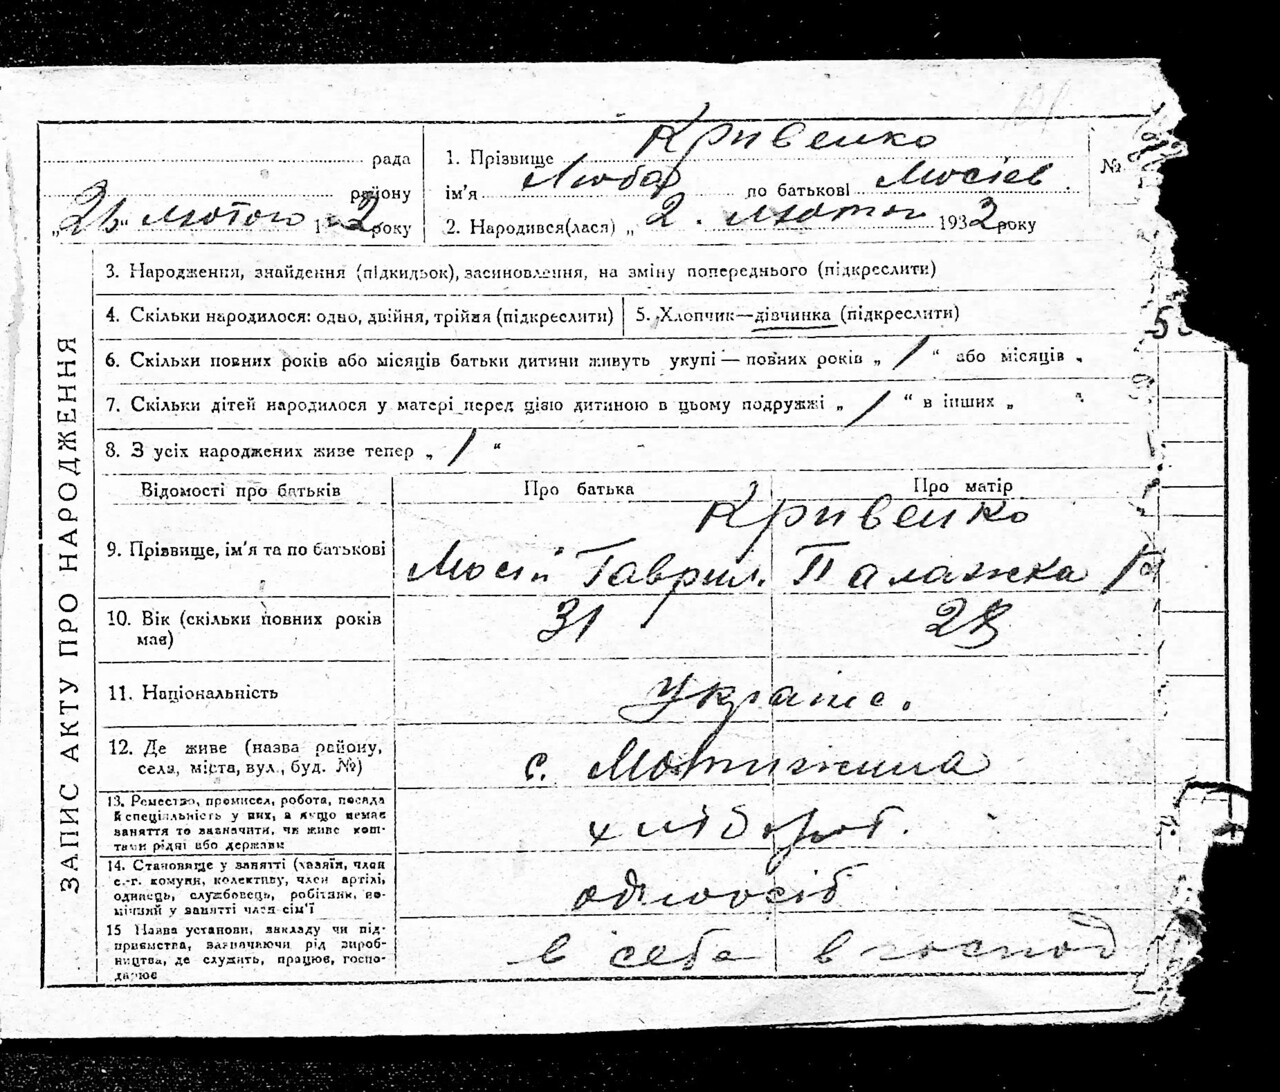 рада
району
„26“ лютого 1932 року
1. Прізвище Кривенко
ім'я Люба по батькові Мосіев.
2. Народився(лася) „2. лютог 1932 року
№
3. Народження, знайдення (підкидьок), засиновлення, на зміну попереднього (підкреслити)
4. Скільки народилося: одно, двійня, трійня (підкреслити)
5. Хлопчик—дівчинка (підкреслити)
6. Скільки повних років або місяців батьки дитини живуть укупі — повних років „ / “ або місяців „
7. Скільки дітей народилося у матері перед цією дитиною в цьому подружжі „ / “ в інших „ “
8. З усіх народжених живе тепер „ / “
ЗАПИС АКТУ ПРО НАРОДЖЕННЯ
Відомості про батьків
Про батька
Про матір
9. Прізвище, ім'я та по батькові
Кривенко
Мосій Гаврил. Палажка
10. Вік (скільки повних років має)
31
28
11. Національність
Українс.
12. Де живе (назва району,
села, міста, вул., буд. №)
с. Мотижина
13. Ремество, промисел, робота, посада
й спеціяльність у них, а якщо немає
заняття то зазначити, чи живе кош-
тами рідні або держави
хлібороб.
14. Становище у занятті (хазяїн, член
с.-г. комуни, колективу, член артілі,
одинець, службовець, робітник, по-
мічний у занятті член сім'ї
одноосіб
15 Назва установи, закладу чи під-
приємства, зазначаючи рід вироб-
ництва, де служить, працює, госпо-
дарює
в себе в господ